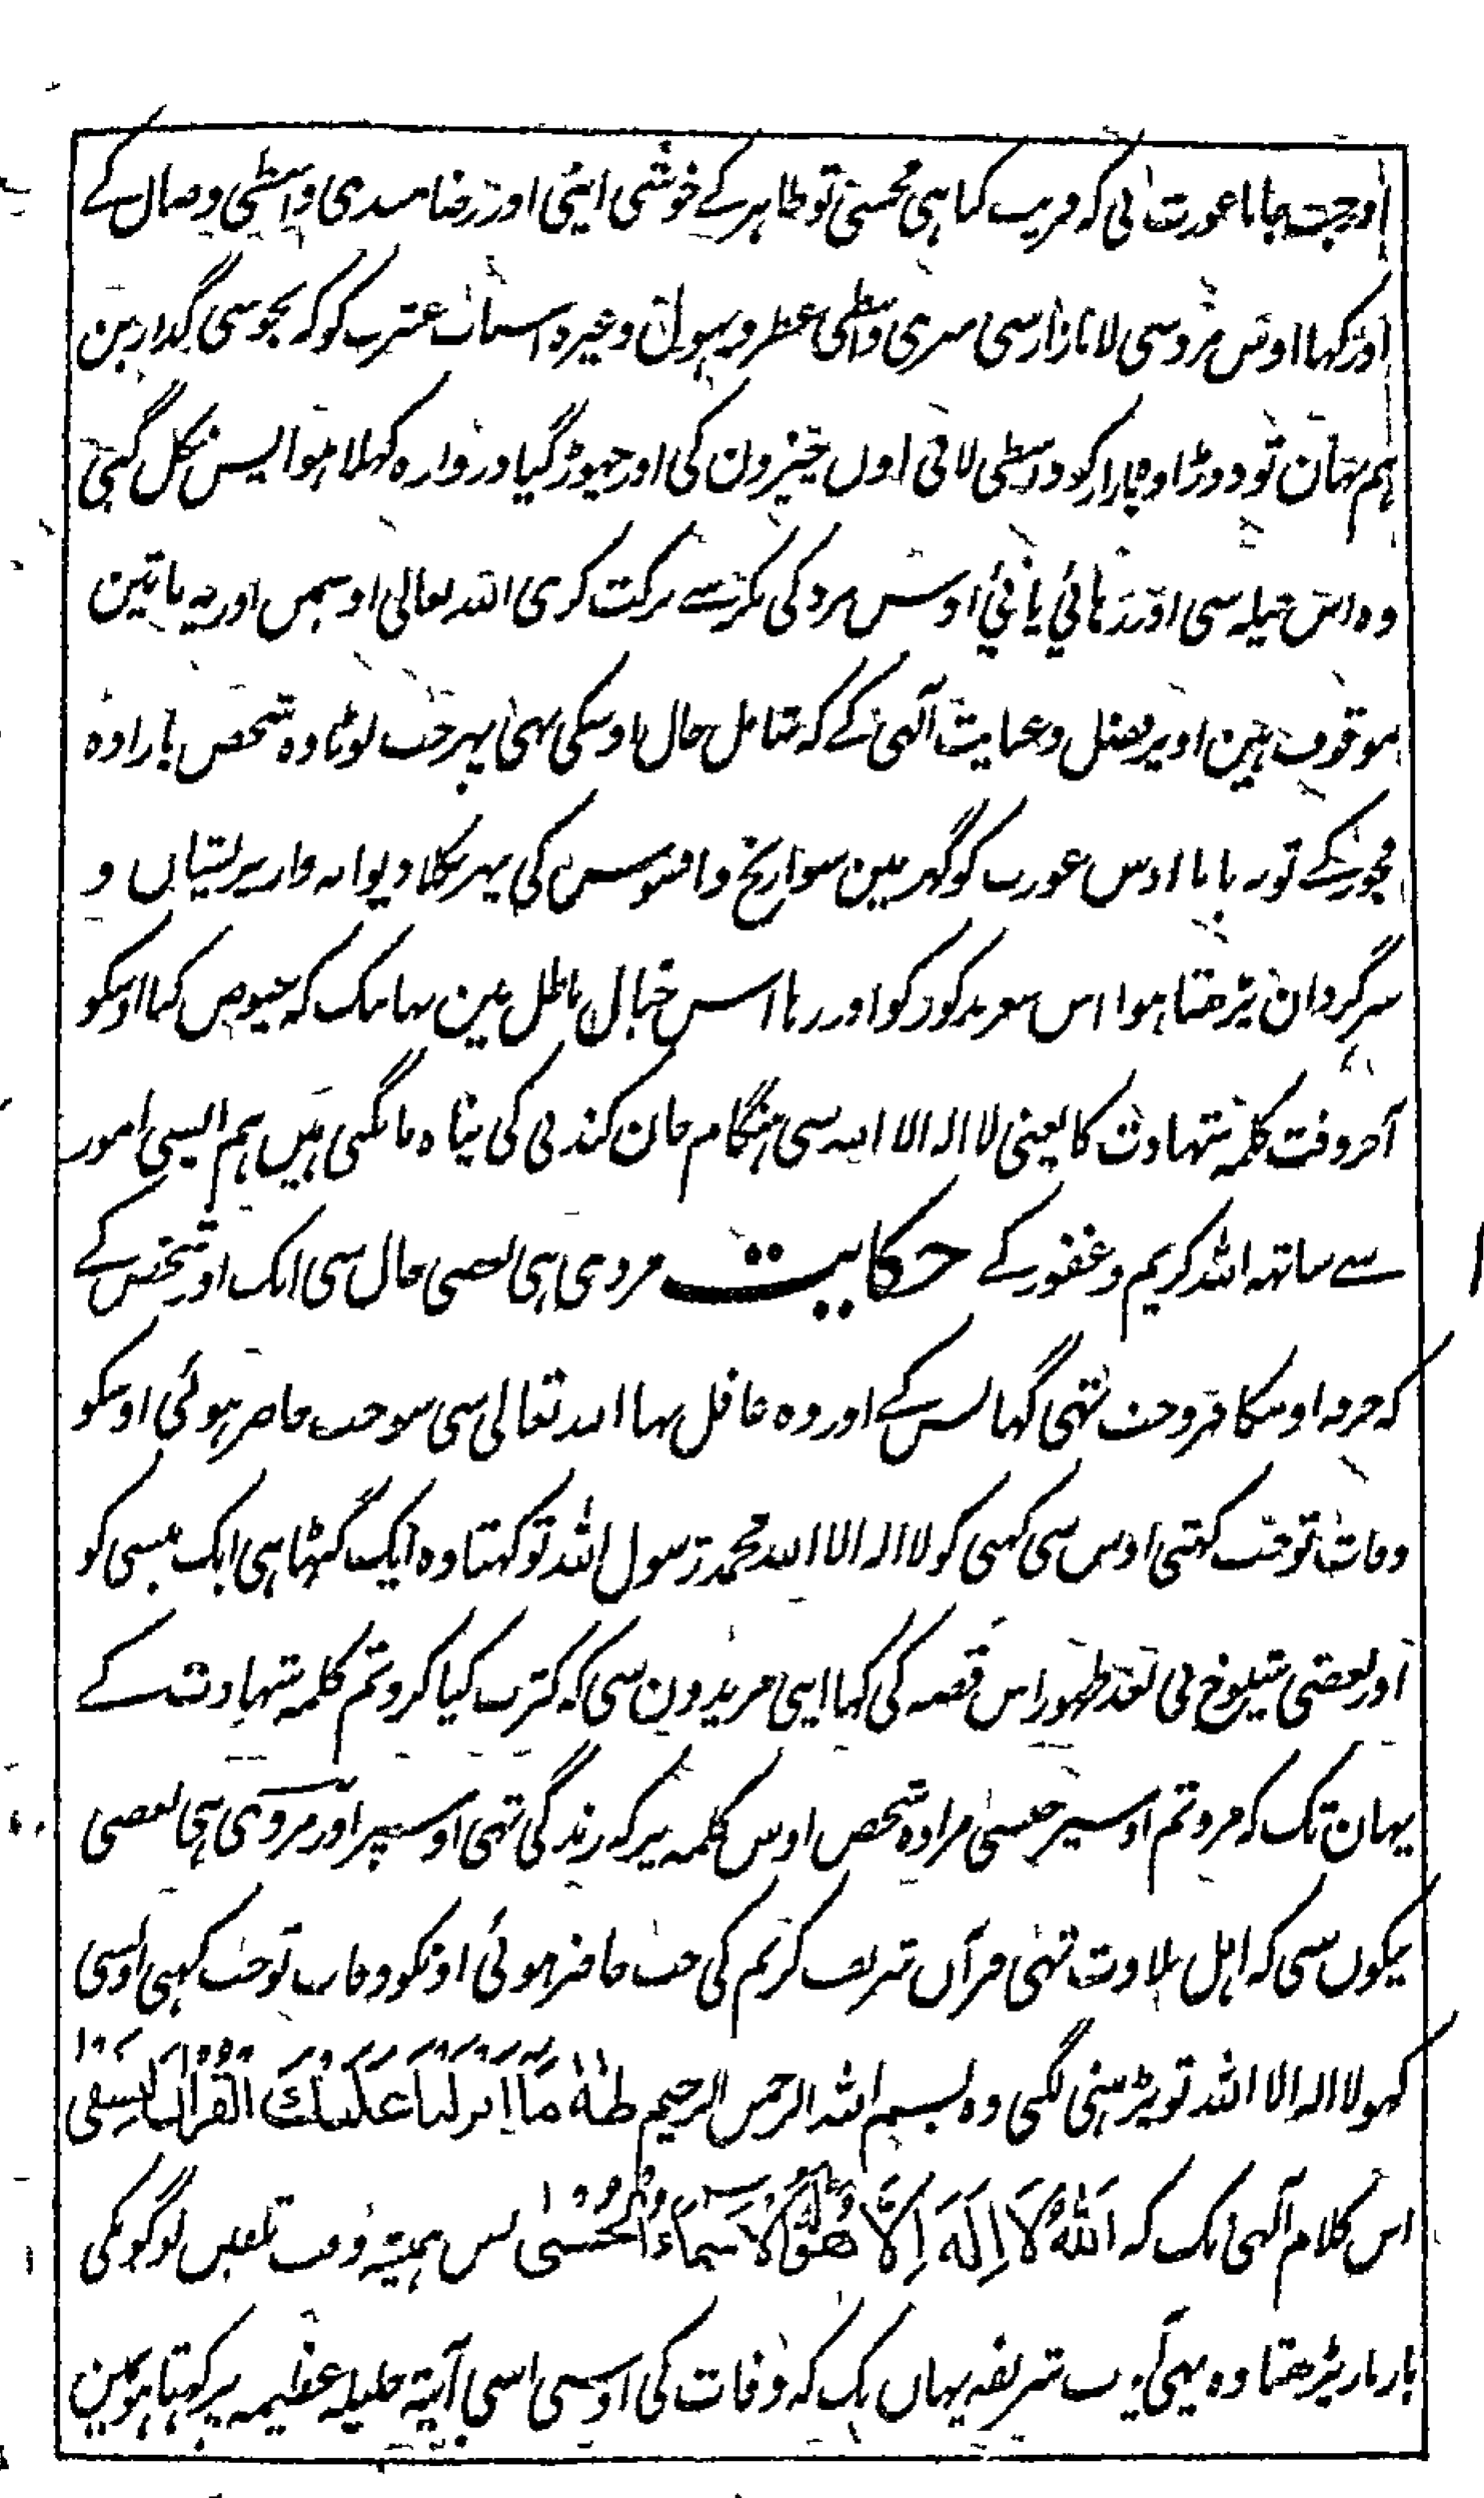 اور جب جانا عورت نی کہ فریب کیا ہی مجسی تو ظاہر کے خوشی اپنی اور رضامندی واسطی وصال کے
اور کہا اوس مرد سی لا بازار سی میری واسطی عطر و پہول وغیرہ اسباب عشرت کو کہ بخوشی گذارین
ہم یہان تو دوڑا وہ بازار کو واسطی لانی اون چیزون کی اور چہوڑ گیا دروازہ کہلا ہوا پس نکل گئی
وہ اس حیلہ سی اور رہائی پائی اوس مرد کی مکر سے برکت کری اللہ تعالی اوسمین اور یہ باتین
موقوف ہین اوپر فضل و عنایت آلہی کے کہ شامل حال اوسکی تہی پہر جب لوٹا وہ شخص بارادہ
فجور کے تو نہ پایا اوس عورت کو گہر مین سوا رنج و افسوس کی پہر نکلا دیوانہ وار پریشان و
سرگردان پڑھتا ہوا اس شعر مذکور کو اور رہا اس خیال باطل مین یہانتک کہ عیوض کیا اوسکو
آخر وقت کلمہ شہادت کا یعنی لا الہ الا اللہ سی ہنگام جان کندنی کی پناہ مانگتی ہین ہم ایسی امور
سے ساتہہ اللہ کریم و غفور کے حکایت مروی ہی بعضی حال سی ایک اور شخص کے
کہ حرفہ اوسکا فروخت تہی گہانس کے اور وہ غافل تہا اللہ تعالی سی سو جب حاضر ہوئی اوسکو
وفات تو جب کہتی اوس سی کہی کو لا الہ الا اللہ محمد رسول اللہ تو کہتا وہ ایک گہٹا ہی ایک پیسی کو
اور بعضی شیوخ نی بعد ظہور اس قصہ کی کہا اپنی مریدون سی کہ کثرت کیا کرو تم کلمہ شہادت کے
یہان تک کہ مرو تم اوسپر جیسی مرا وہ شخص اوس کلمہ پر کہ زندگی تہی اوسپر اور مروی ہی بعضی
نیکون سی کہ اہل تلاوت تہی قرآن شریف کریم کی جب حاضر ہوئی اونکو وفات تو جب کہی اوسی
کہو لا الہ الا اللہ تو پڑہنی لگی وہ بسم اللہ الرحمن الرحیم طٰهٰ مَا اَنزَلنَا عَلَیكَ القُراٰنَ لِتَشقٰی
اس کلام آلہی تک کہ اَللّٰهُ لَا اِلٰهَ اِلَّا هُوَ لَهُ الاَسمَاءُ الحُسنٰی پس ہمیشہ وقت تلقین لوگونکی
بار بار پڑھتا وہ یہی آیت شریفہ یہان تک کہ وفات کی اوسی اسی آیۃ جلیلہ عظیمہ پر کہتا ہون مین